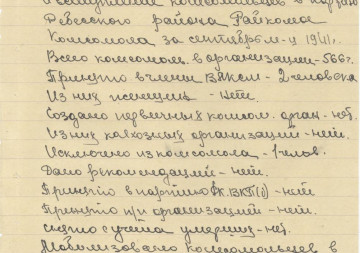 вступлении комсомольцев в партию
Ревского района Райкома
Комсомола за сентябрь м-ц 1941 г.
Всего комсомол. в организации - 566 ч.
Принято в члены ВЛКСМ - 2 человека
Из них женщин - нет.
Создано первичных комсом. орган. - нет.
Из них колхозных организаций - нет.
Исключено из комсомола - 1 челов.
Дано рекомендаций - нет.
Принято в партию /К. ВКП(б) - нет
Принято п/и организаций - нет.
снято с учета умерших - нет.
Мобилизовано комсомольцев в